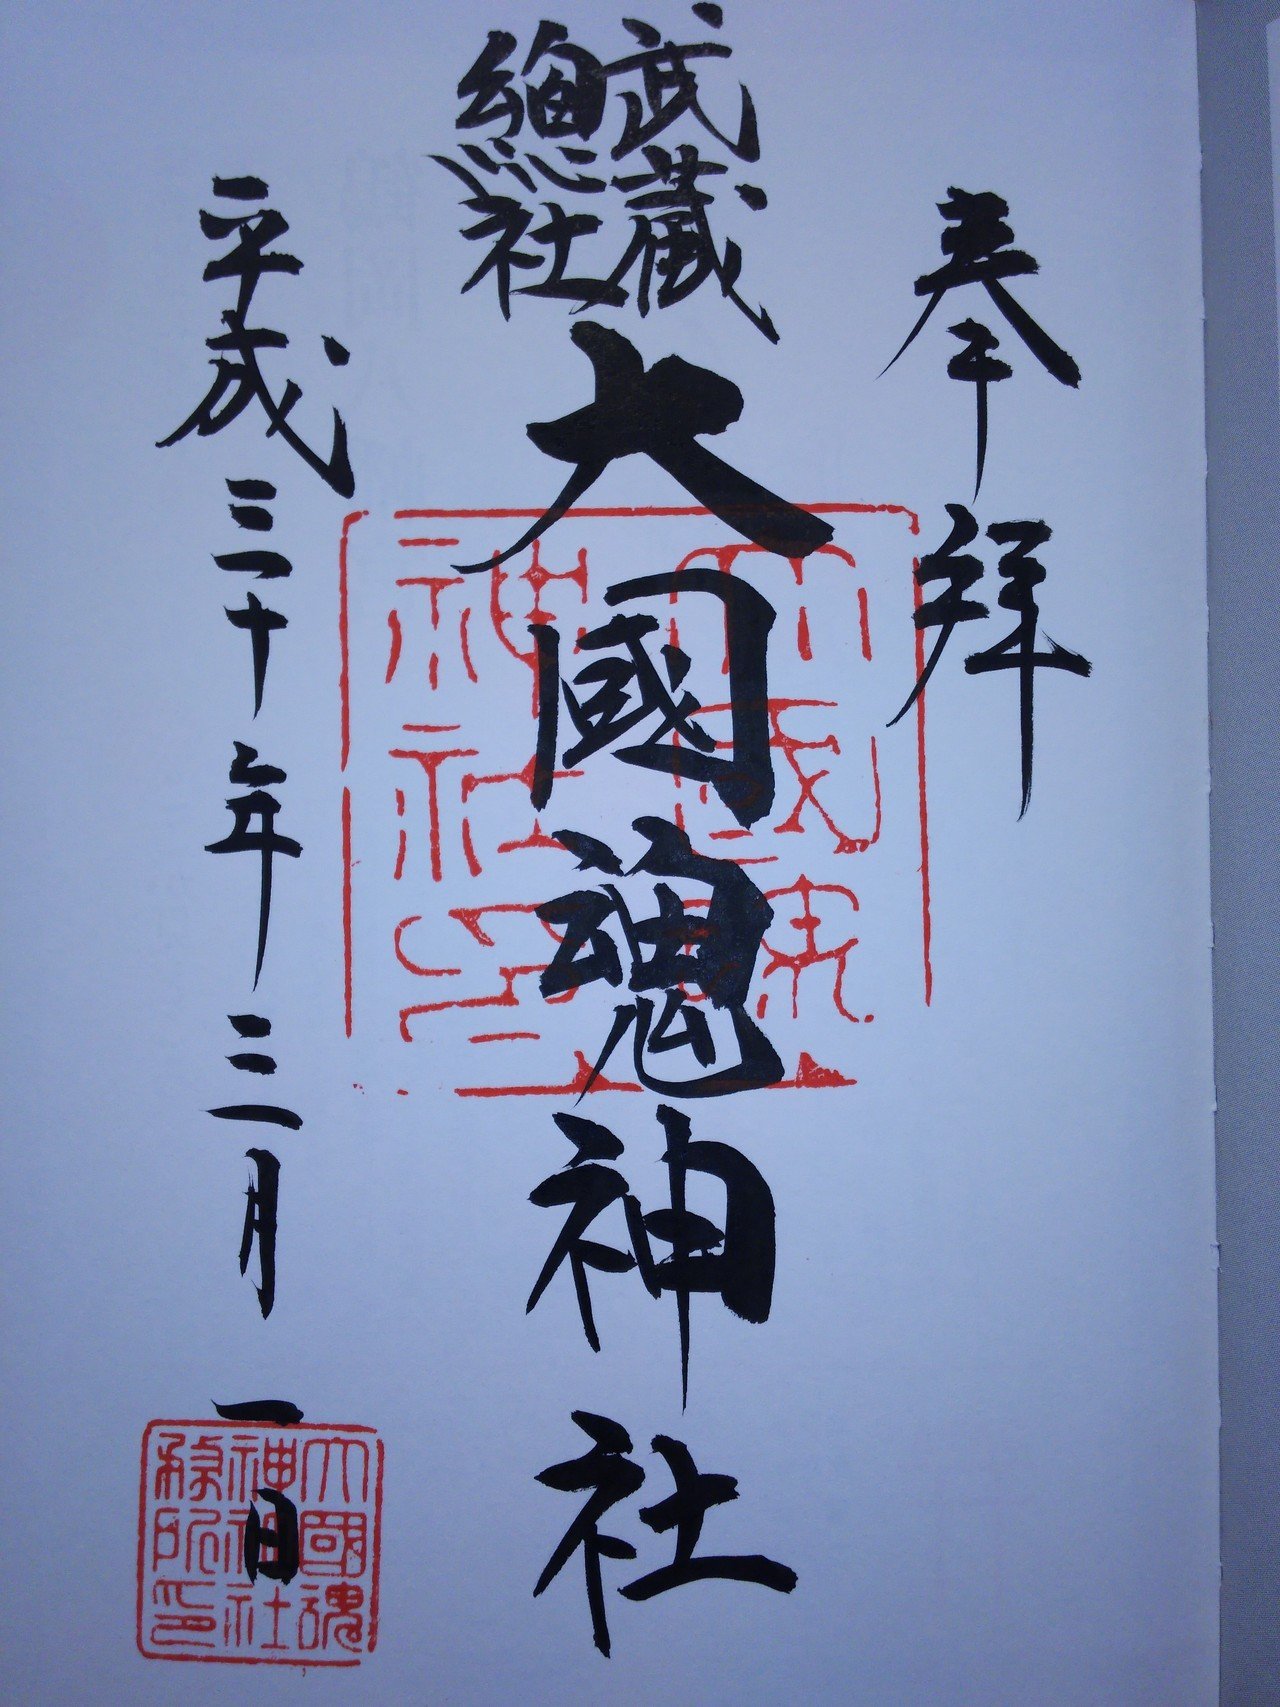 奉拝
武蔵
總社
大國魂神社
平成三十年三月一日
大國魂
神社印
大國魂
神社社
務所印